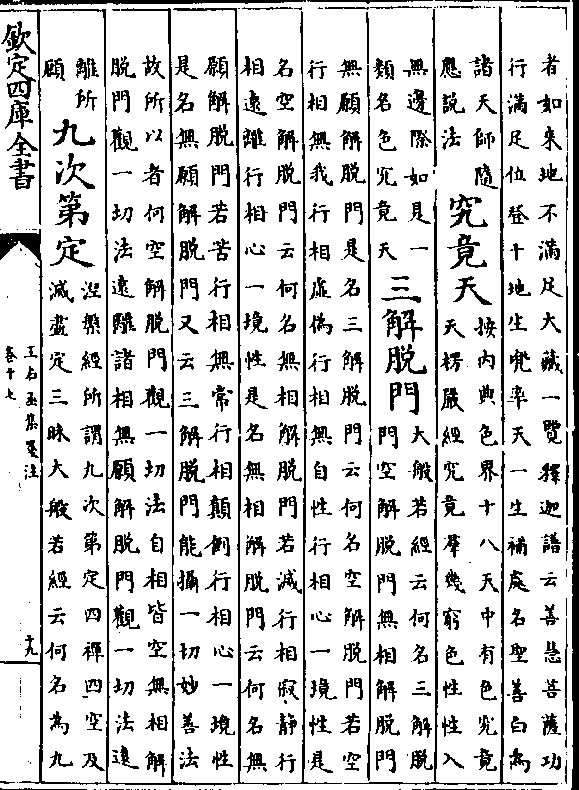 者如來地不滿足大藏一覽釋迦譜云善慧菩薩功
行滿足位登十地生兜率天一生補處名聖善白為
諸天師隨
應說法
究竟天
按內典色界十八天中有色究竟
天楞嚴經究竟羣幾窮色性性入
無邊際如是一
類名色究竟天
三解脫門
大般若經云何名三解脫
門空解脫門無相解脫門
無願解脫門是名三解脫門云何名空解脫門若空
行相無我行相虛偽行相無自性行相心一境性是
名空解脫門云何名無相解脫門若滅行相寂靜行
相遠離行相心一境性是名無相解脫門云何名無
願解脫門若苦行相無常行相顛倒行相心一境性
是名無願解脫門又云三解脫門能攝一切妙善法
故所以者何空解脫門觀一切法自相皆空無相解
脫門觀一切法遠離諸相無願解脫門觀一切法遠
離所
願
九次第定
涅槃經所謂九次第定四禪四空及
滅盡定三昧大般若經云何名為九
欽定四庫全書
王右丞集箋注
卷十七
十九